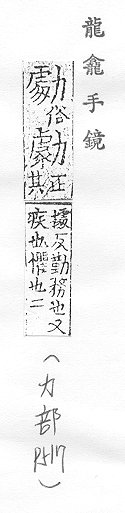 龍龕手鏡
俗勮正其
據反勤務也又
疾也懼也二
(力部 P517)